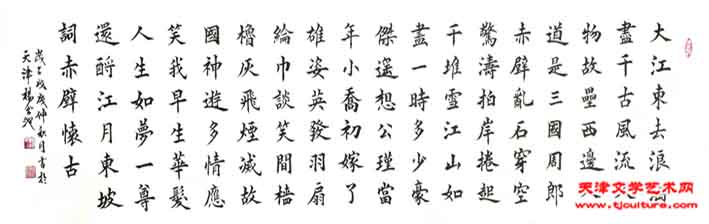 大江東去浪淘
盡千古風流
物故壘西邊
道是三國周郎
赤壁亂石穿空
驚濤拍岸捲起
千堆雪江山如
畫一時多少豪
傑遥想公瑾當
年小喬初嫁了
雄姿英發羽扇
綸巾談笑間檣
櫓灰飛煙滅故
國神遊多情應
笑我早生華髮
人生如夢一尊
還酹江月東坡
詞赤壁懷古
戊戌仲秋月書於
天津楊
天津文学艺术网
www.tjculture.com